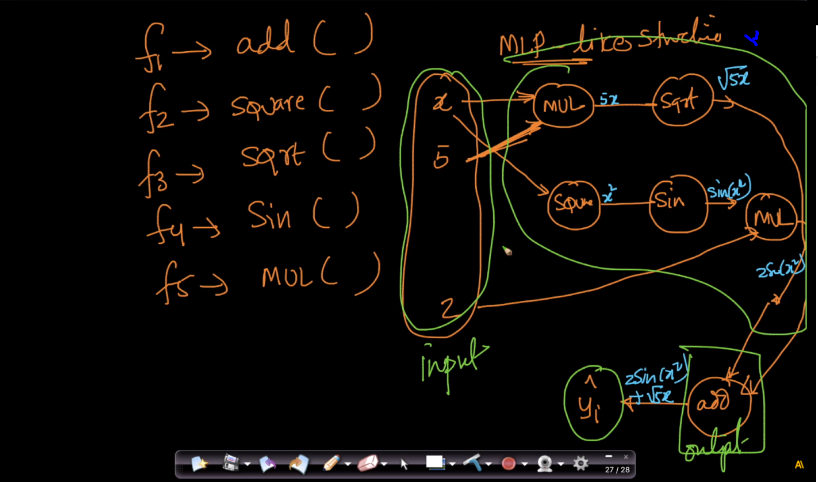 f1 → add ( )
f2 → square ( )
f3 → sqrt ( )
f4 → Sin ( )
f5 → MUL ( )
MLP-like structure
x
5
2
input
MUL
5x
Sqrt
√5x
Square
x²
Sin
sin(x²)
MUL
2Sin(x²)
add
2Sin(x²)
+√5x
ŷi
output
27 / 28